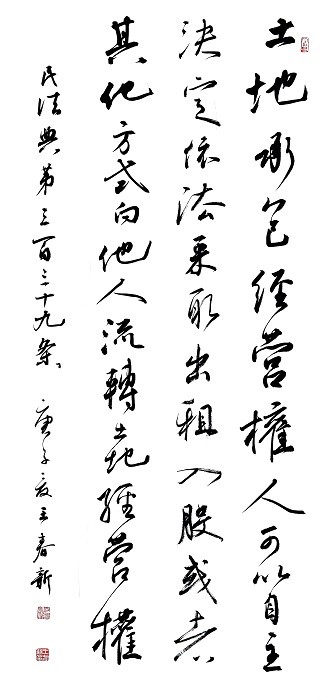 土地承包经营權人可以自主
決定依法采取出租入股或者
其他方式向他人流轉土地經营權
民法典第三百三十九條 庚子夏王春新